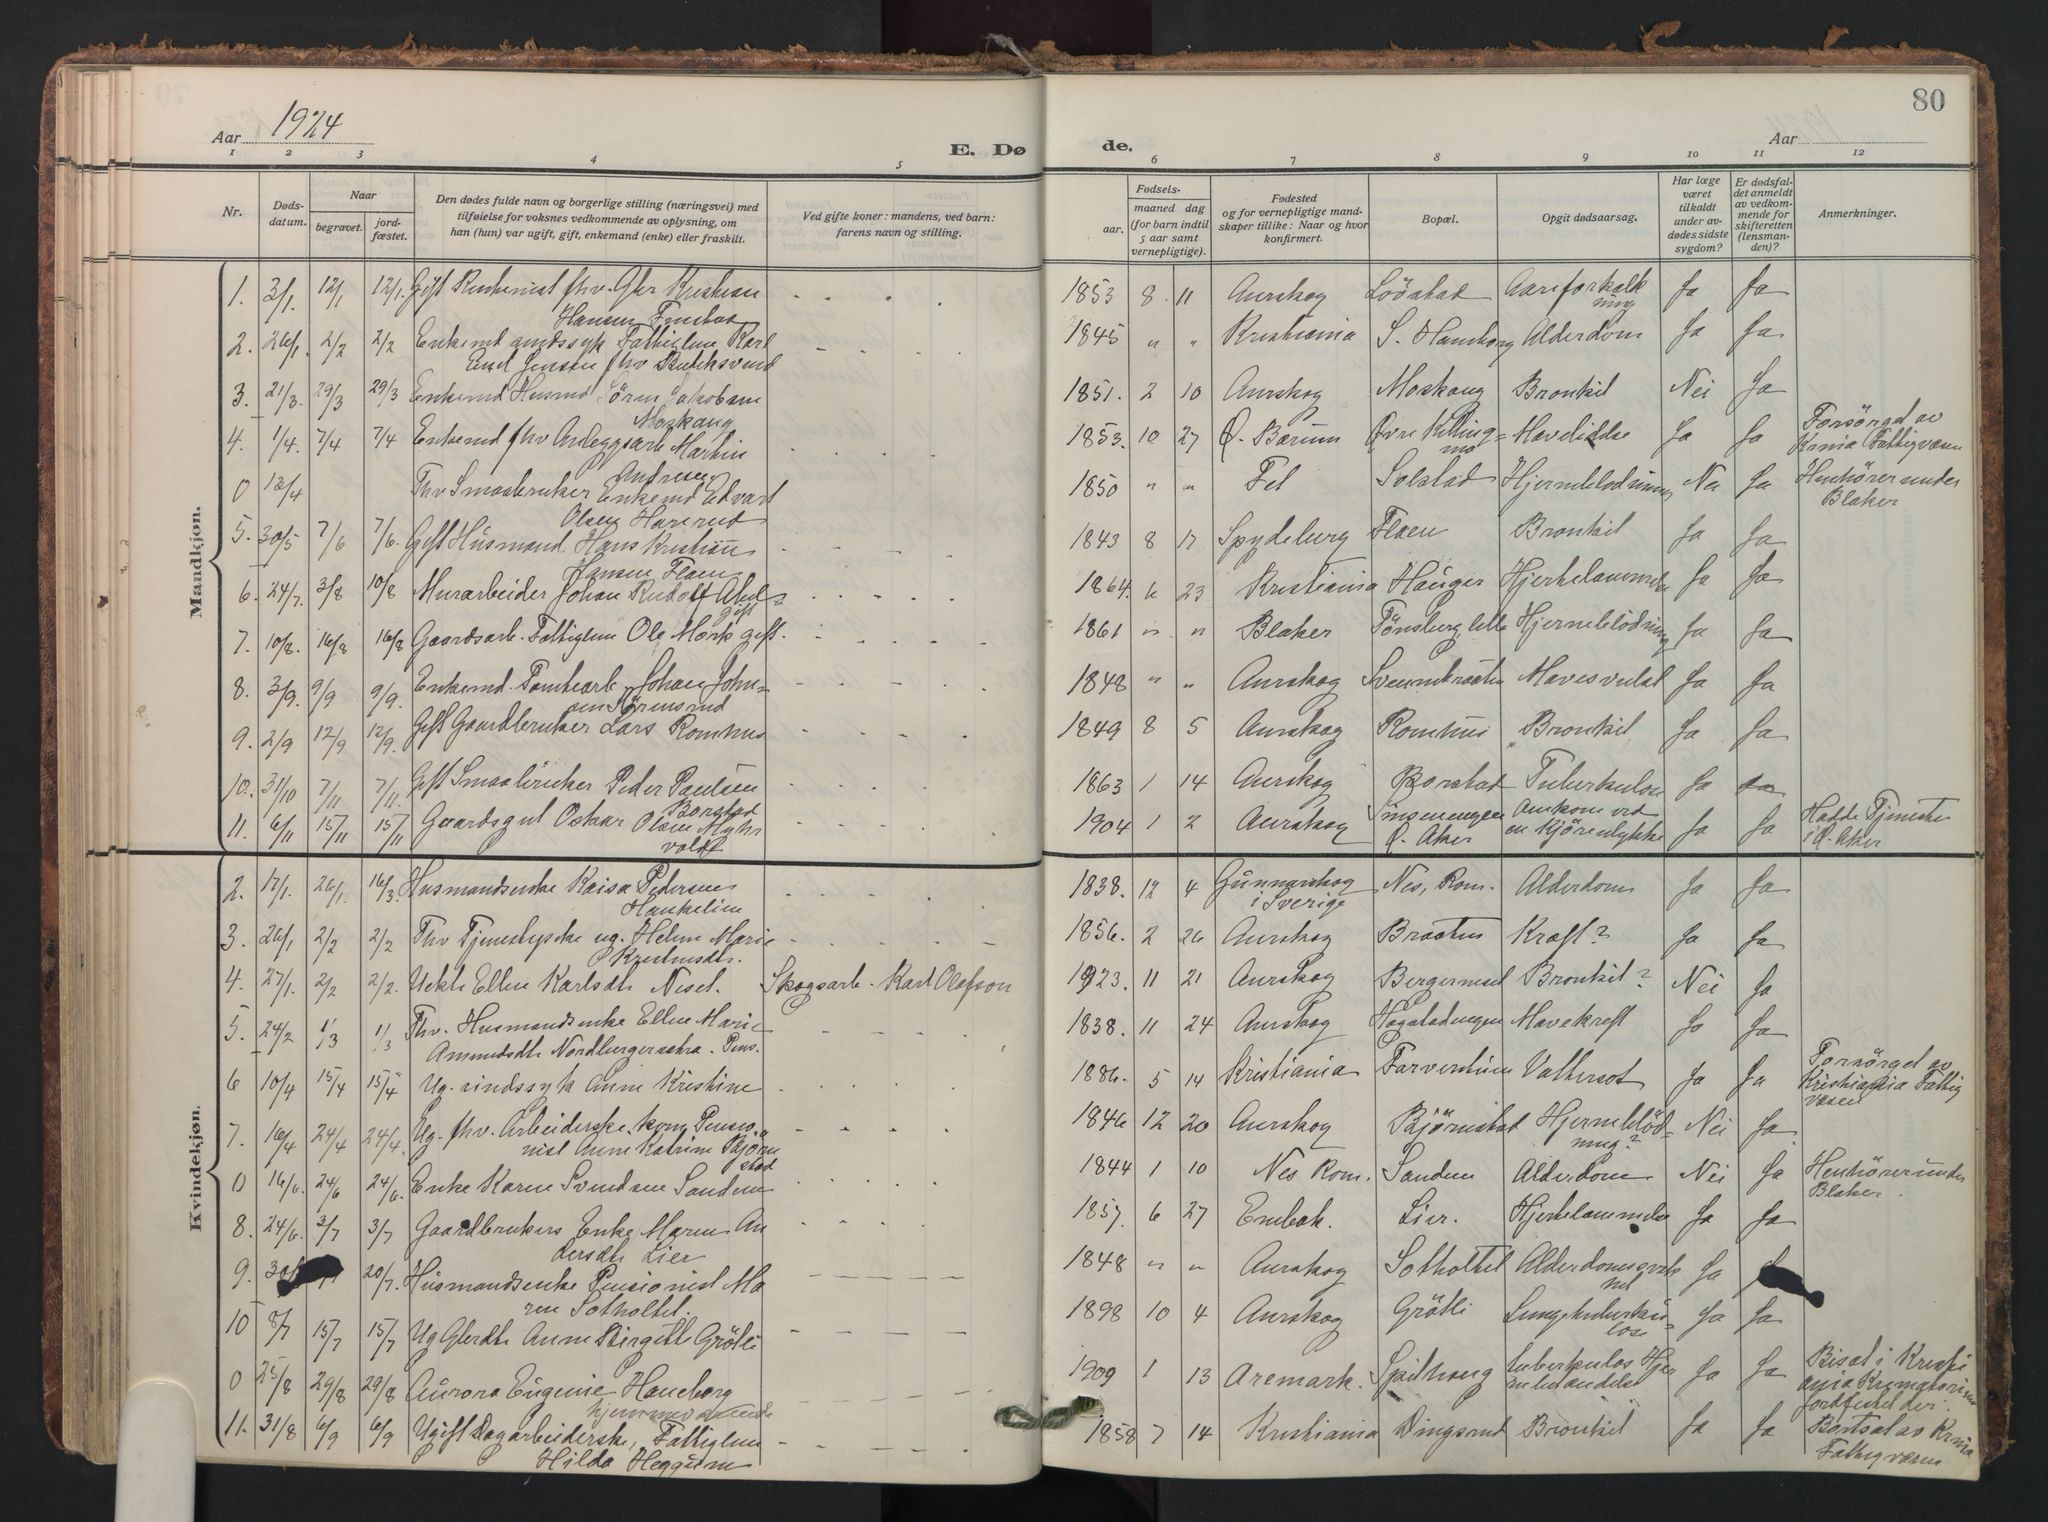 80
Aar 1924
E. Dø
de.
Aar
1 2 3 4 5 6 7 8 9 10 11 12
Nr.
Døds-
datum.
Naar
begravet.
jord-
fæstet.
Den dødes fulde navn og borgerlige stilling (næringsvei) med
tilføielse for voksnes vedkommende av oplysning, om
han (hun) var ugift, gift, enkemand (enke) eller fraskilt.
Ved gifte koner: mandens, ved barn:
farens navn og stilling.
Fødsels-
aar.
maaned dag
(for barn indtil
5 aar samt
vernepligtige).
Fødested
og for vernepligtige mand-
skaper tillike: Naar og hvor
konfirmert.
Bopæl.
Opgit dødsaarsag.
Har læge
været
tilkaldt
under av-
dødes sidste
sygdom?
Er dødsfal-
det anmeldt
av vedkom-
mende for
skifteretten
(lensman-
den)?
Anmerkninger.
Maadkjøn.
1. 3/1. 12/1 12/1. Gift fhv. Gbr Kristian 1853 8 11 Aurskog Aareforkalk Ja Ja
Hansen ning
2. 26/1. 2/2 2/2 Enkemd sindssyk Fattiglem Karl 1845 " " Kristiania S. Haneborg Alderdom Ja Ja
Jensen fhv
3. 21/3. 29/3 29/3 Enkemd Husmd Sören Jakobsen 1851. 2 10 Aurskog Moskaug Bronkit Nei Ja
Moskaug
4. 1/4. 7/4 7/4 Enkemd fhv Anleggsarb Martin 1853. 10 27 Ø. Bærum Øvre Killing= Ja Ja Forsörget av
Andresen mo Krnia Fattigvæsen
0 12/4 Fhv Smaabruker Enkemd Edvart 1850 " " Fet Solstad Hjerneblödning Nei Ja Henhörer under
Olsen Blaker
5. 30/5 7/6 7/6. Gift Husmand Hans Kristian 1843 8 17 Spydeberg Floen Bronkit Ja Ja
Hansen Floen
6. 24/7. 3/8 10/8 Murarbeider Johan Rudolf 1864. 6 23 Kristiania Hauger Hjertelammelse Ja Ja
gift
7. 10/8. 16/8 16/8 Gaardsarb. Fattiglem Ole Mörk gift. 1861 " " Blaker Tönsberg, lille Hjerneblödning Ja Ja
8. 3/9. 9/9 9/9. Enkemd. Tomtearb. Johan John= 1848 " " Aurskog Svennebraaten Mavesvulst Ja Ja
sen
9. 2/9 12/9 12/9. Gift Gaardbruker Lars Romhus 1849 8 5 Aurskog Romhus Bronkit Ja Ja
10. 31/10 7/11 7/11. Gift Smaabruker Peder Paulsen 1863 1 14 Aurskog Borstad Tuberkulose Ja Ja
Borstad
11. 6/11 15/11 15/11 Gaardsgut Oskar Olsen Myhr 1904 1 2 Aurskog Omkom ved Ja Ja Hadde Tjeneste
vold Ö. Aker en Kjöreulykke i Ö. Aker
Kvindekjøn.
2. 17/1. 26/1. 16/3. Husmandsenke Kaisa Pedersen 1838. 12 4 Gunnarskog Nes, Rom. Alderdom Ja Ja
i Sverige
3. 26/1 2/2 2/2 Fhv ug. Helene Marie 1856. 2 26 Aurskog Braaten Kræft? Ja Ja
4. 27/1. 2/2 2/2. Uekte Ellen Karlsdtr Neset. Skogsarb. Karl Olafson 1923. 11 21 Aurskog Bergerneset Bronkit? Nei Ja
5 24/2 1/3 1/3 Fhv. Husmandsenke Ellen Marie 1838. 11 24 Aurskog Mavekreft Ja Ja
Amundsdtr Pens.
6 10/4 15/4 15/4 Ug. sindssyk Anne Kristine 1886. 5 14 Kristiania Vattersot Ja Ja Forsörget av
Kristiania Fattig
væsen
7. 16/4 24/4 24/4. Ug. fhv. Arbeiderske, Pensio= 1846 12 20 Aurskog Björnstad Hjerneblöd= Nei Ja
nist Anne Katrine Björn ning?
stad
0 16/6. 24/6 24/6. Enke Karen Svendsen Sanden 1844 1 10 Nes Rom. Sanden Alderdom Nei Ja Henhörer under
Blaker
8. 24/6. 3/7 3/7 Gaardbrukers Enke Maren An 1857. 6 27 Enebak. Lier. Hjertelammelse Ja Ja
dersdtr Lier
9. 30/ 20/7. Husmandsenke Pensionist Ma 1848 " " Aurskog Sotholtet Ja
ren Sotholtet.
10 8/7 15/7 15/7 Ug Anne Birgitte Grötli 1898 10 4 Aurskog Grötli Lungetuberku= Ja Ja
lose
0 25/8 29/8 29/8 Aurora Eugenie Haneborg 1909 1 13 Aremark. tuberkulos Hjer Ja Ja Bisat i Kristi
hjemmeværende nebetændelse ania Krematorium
11. 31/8 6/9 6/9 Ugift Dagarbeiderske, Fattiglem 1858 7 14 Kristiania Dingsrud Bronkit Ja Ja Bortsat av Krnia
Hilda Heggum Fattigvæsen